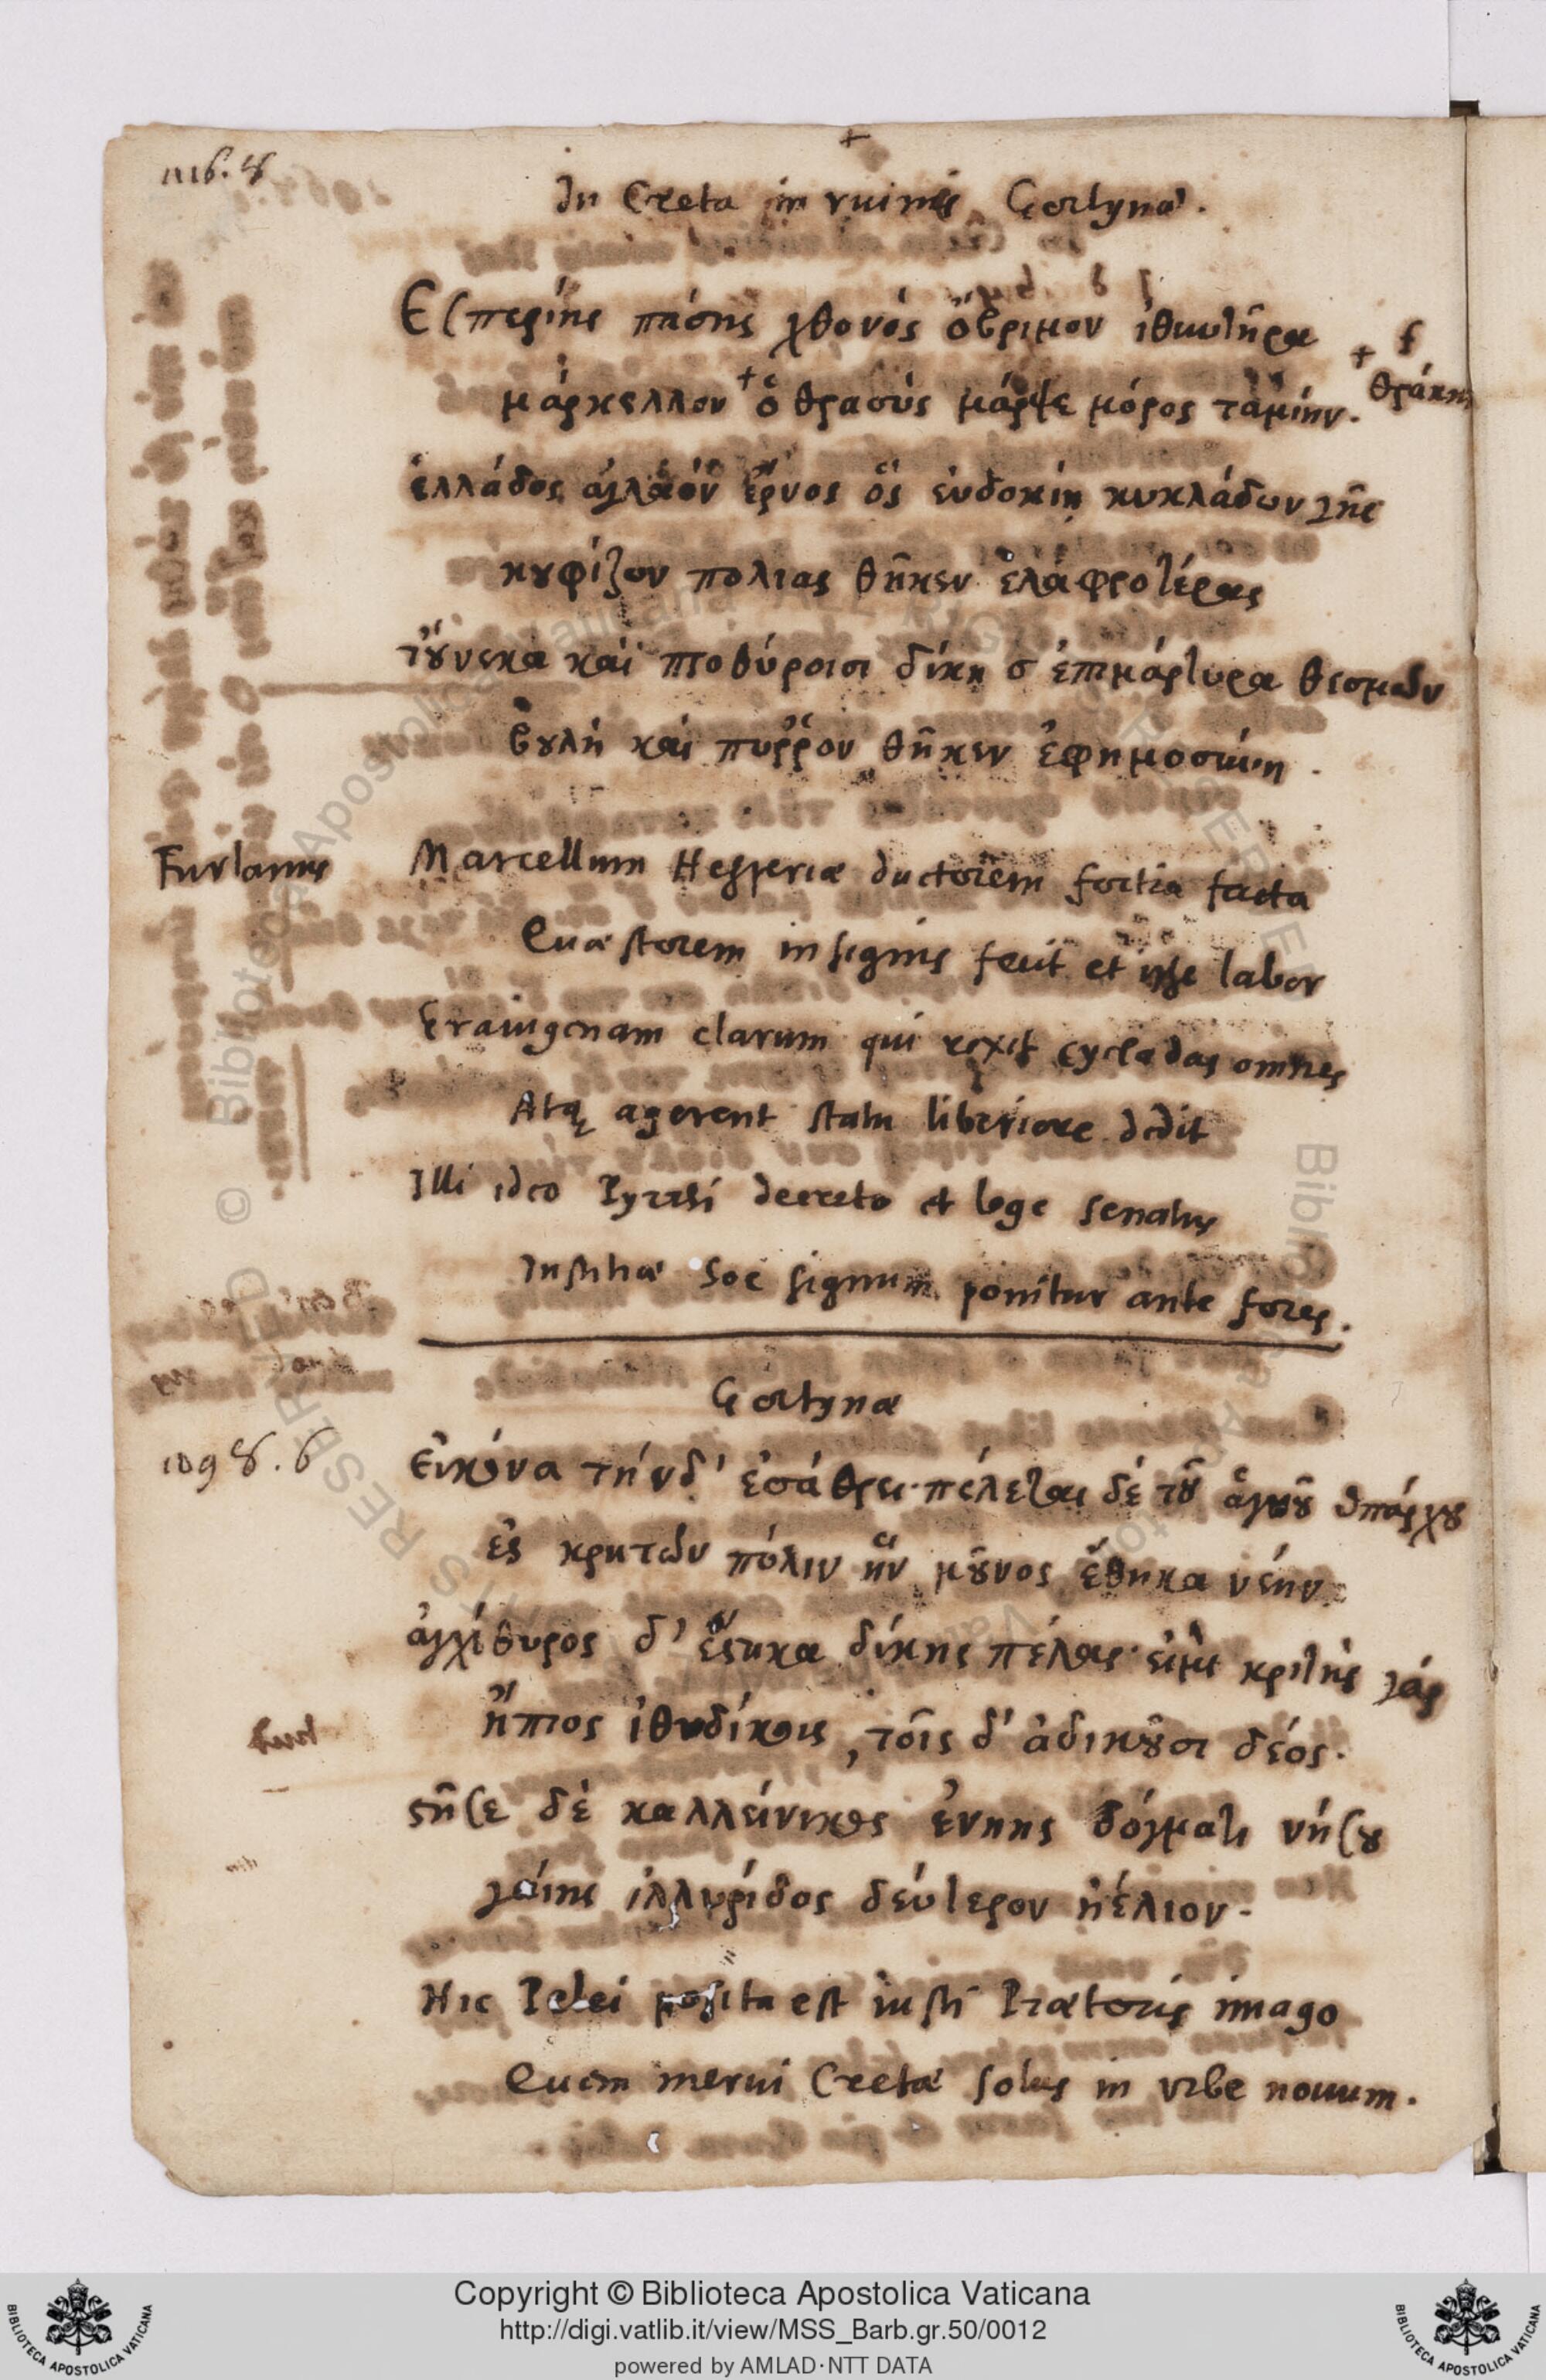 1116. 8
In Creta in ruinis Gortynæ.
Εσπερίης πάσης χθονός ὄβριμον ἰθυντῆρα
μάρκελλον + ὁ θρασύς μάρψε μόρος ταμίην. + θράκης
ἑλλάδος ἀγλαόν ἔρνος ὅς εὐδοκίη κυκλάδων γῆς
κουφίζων πολιας θῆκεν ἐλαφροτέρας
τοὔνεκα καί προθύροισι δίκη σ ἐπιμάρτυρα θεσμῶν
βουλή καί πυῤῥον θῆκεν ἐφημοσύνη
Furlanus
Marcellum Hesperiæ ductorem fortia facta
Quæstorem insignis fecit et ipse labor
Graiugenam clarum qui rexit cycladas omnes
Atq agerent statu liberiore dedit
Illi ideo Pyrrhi decreto et lege senatus
Iustitiæ hoc signum ponitur ante fores.
Gortynæ
1098. 6
Εἰκόνα τήνδ' ἐσάθρει· πέλεται δέ τοῦ ἁγνοῦ ὑπάρχου
ἐς κρητῶν πόλιν ἥν μοῦνος ἔθηκα νέην
ἀγχίθυρος δ' ἕστηκα δίκης πέλας· εἰμί κριτής γάρ
ἤπιος ἰθυδίκοις, τοῖς δ' ἀδικοῦσι δέος.
Furl
στῆσε δέ καλλείνικος ἐνηης δόγματι νήσου
γαίης ἰλλυρίδος δεύτερον ἠέλιον.
Hic Pelei posita est iusti Prætoris imago
Quem merui Cretæ solus in vrbe nouum.
Copyright © Biblioteca Apostolica Vaticana
http://digi.vatlib.it/view/MSS_Barb.gr.50/0012
powered by AMLAD·NTT DATA
BIBLIOTECA APOSTOLICA VATICANA
BIBLIOTECA APOSTOLICA VATICANA